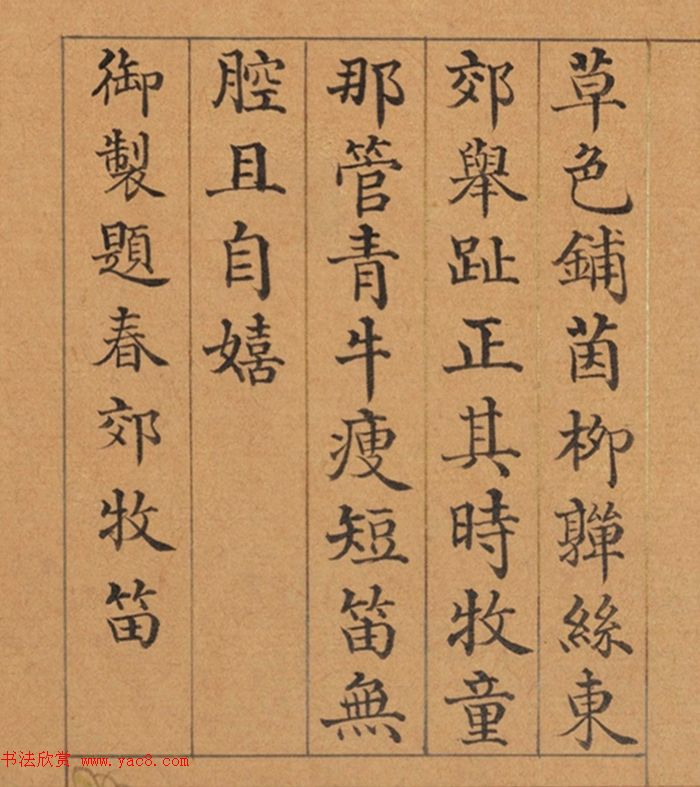 草色鋪茵柳嚲絲東
郊舉趾正其時牧童
那管青牛瘦短笛無
腔且自嬉
御製題春郊牧笛
书法欣赏 www.yac8.com